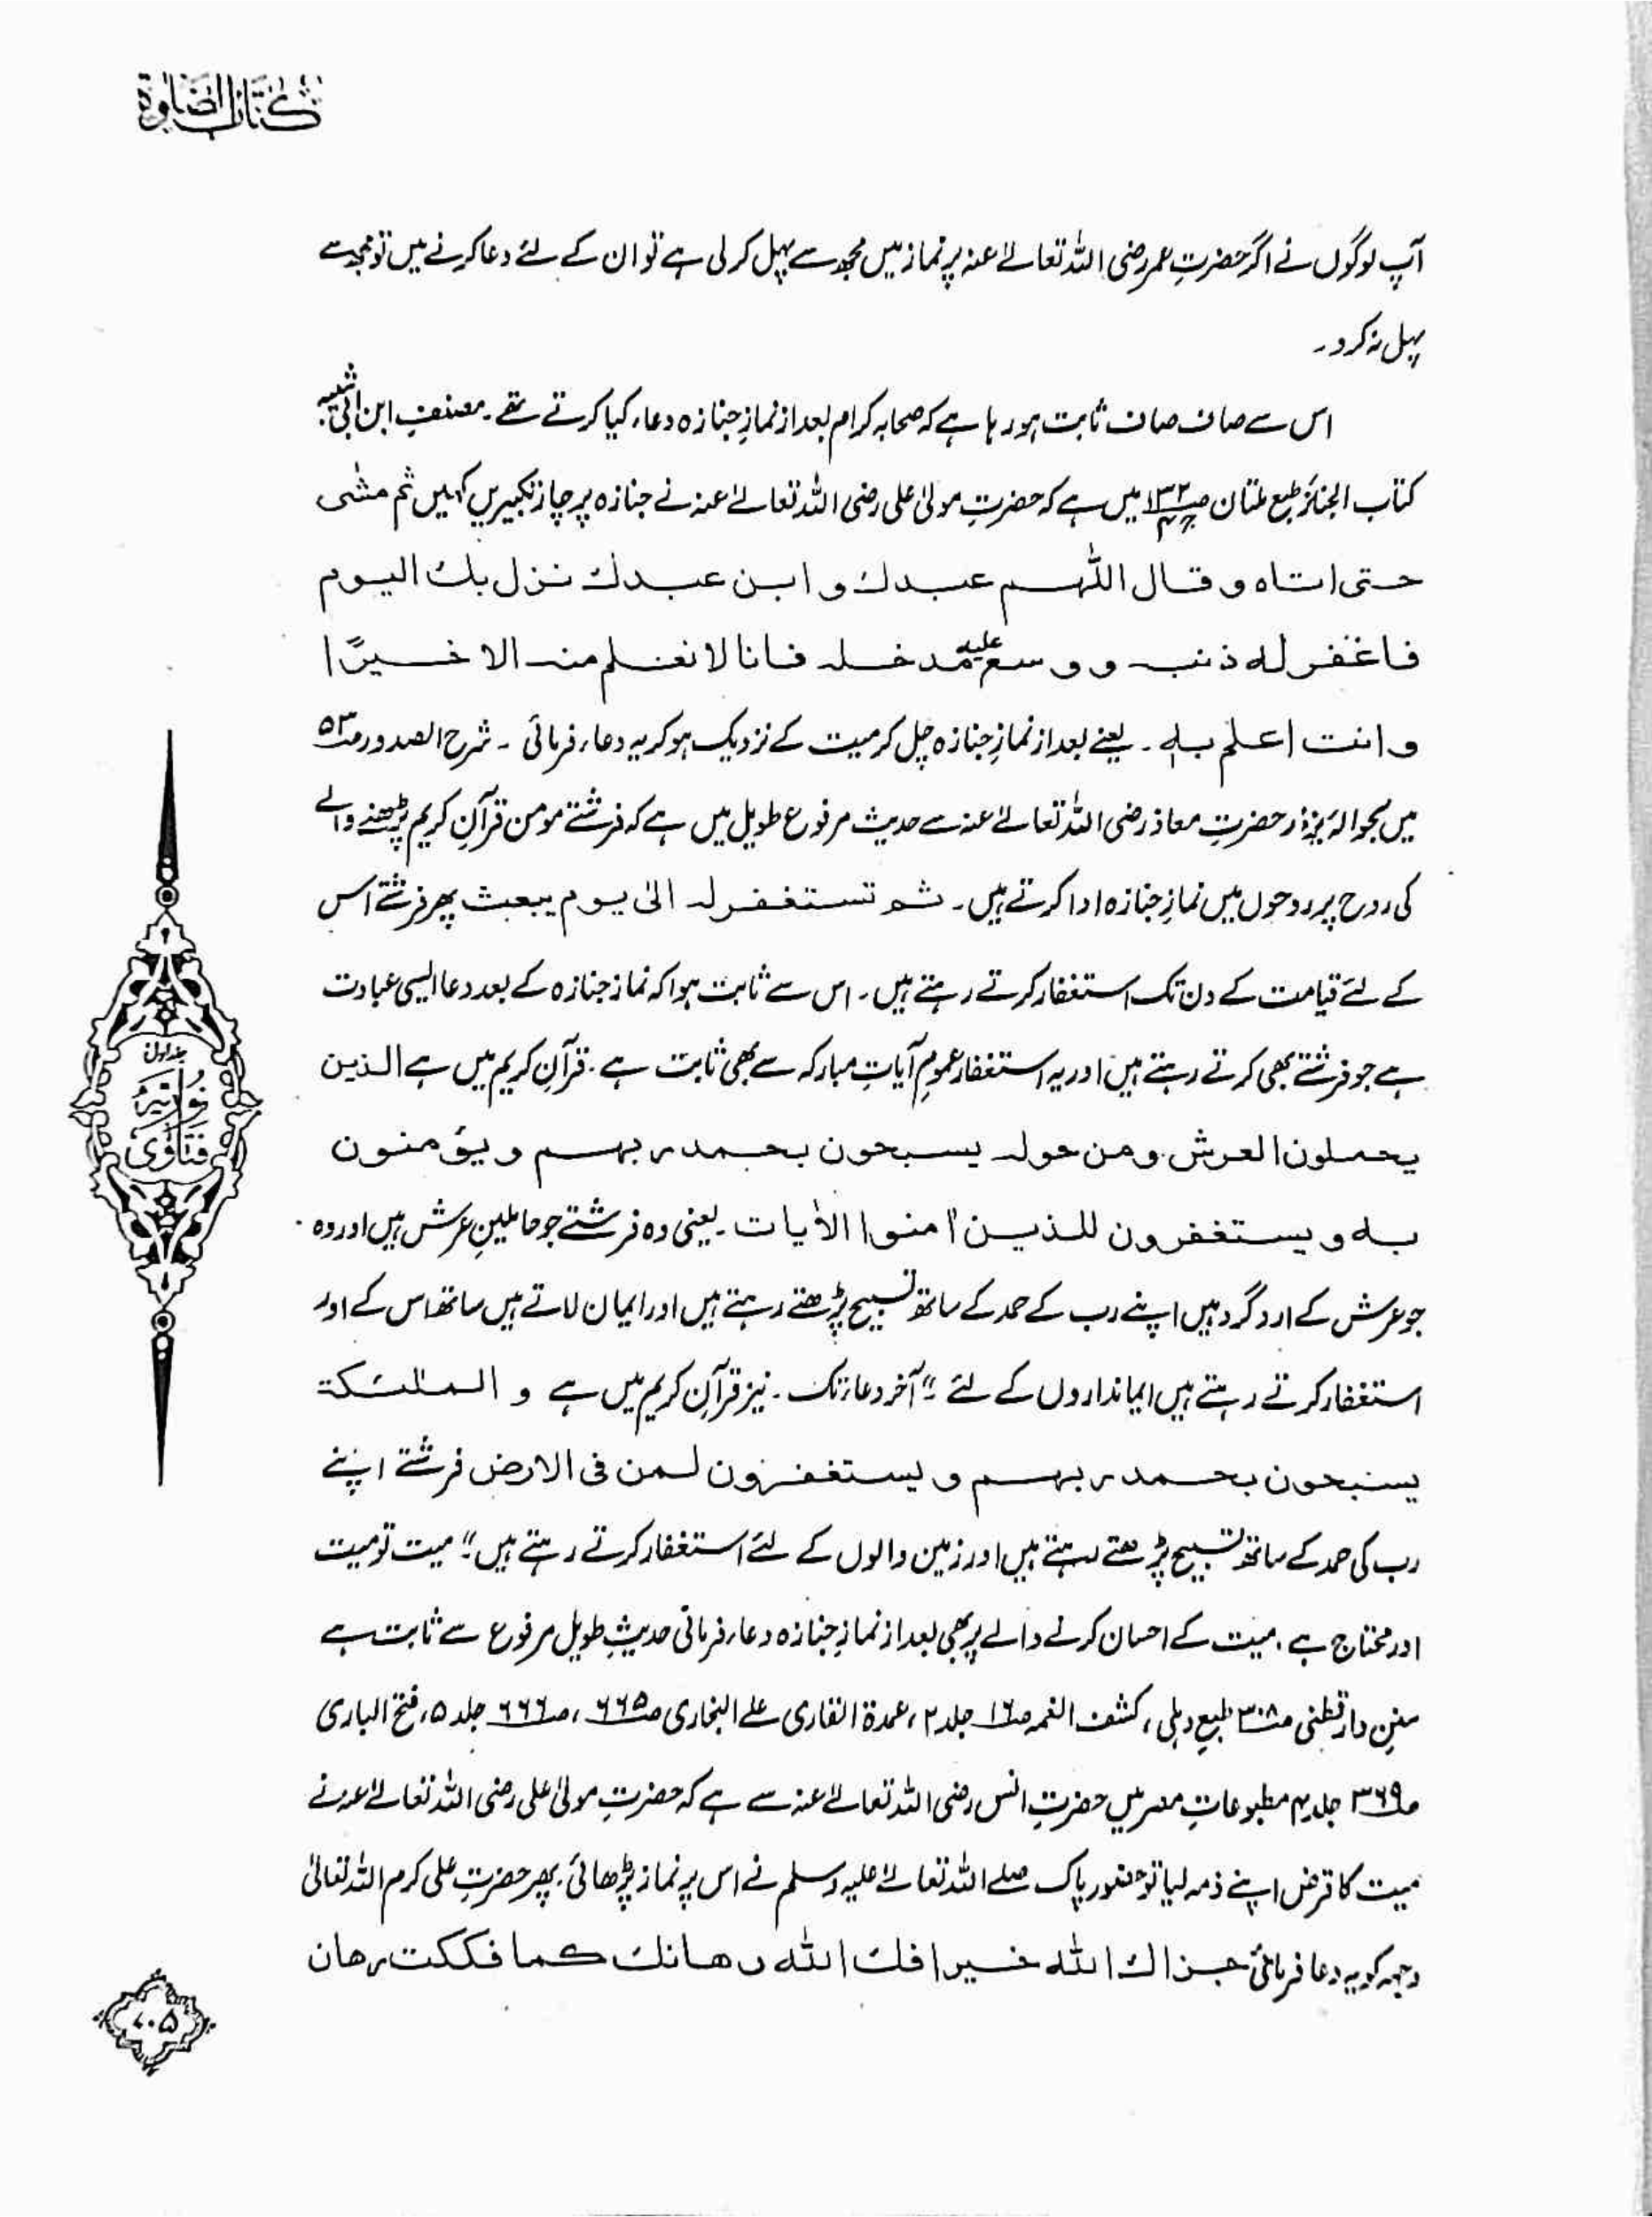 کتاب الصلوة
آپ لوگوں نے اگر حضرتِ عمر رضی اللہ تعالےٰ عنہ پر نماز میں مجھ سے پہل کر لی ہے تو ان کے لئے دعا کرنے میں تو مجھ سے
پہل نہ کرو۔
اس سے صاف صاف ثابت ہو رہا ہے کہ صحابہ کرام بعد از نمازِ جنازہ دعاء کیا کرتے تھے۔ مصنف ابن ابی شیبہ
کتاب الجنائز طبع ملتان میں ہے کہ حضرتِ مولیٰ علی رضی اللہ تعالےٰ عنہ نے جنازہ پر چار تکبیریں کہیں ثم مشی
حتی اتاہ و قال اللّٰہم عبدك و ابن عبدك نزل بك الیوم
فاغفر له ذنبہ و وسع علیہ مدخلہ فانا لا نعلم منہ الا خیرًا
و انت اعلم بہٖ۔ یعنے بعد از نمازِ جنازہ چل کر میت کے نزدیک ہو کر یہ دعاء فرمائی ۔ شرح الصدور ص۵۳
میں بحوالہ بزار حضرتِ معاذ رضی اللہ تعالےٰ عنہ سے حدیث مرفوع طویل میں ہے کہ فرشتے مومن قرآنِ کریم پڑھنے والے
کی روح پر روحوں میں نمازِ جنازہ ادا کرتے ہیں۔ ثم تستغفر لہ الیٰ یوم یبعث پھر فرشتے اس
کے لئے قیامت کے دن تک استغفار کرتے رہتے ہیں۔ اس سے ثابت ہوا کہ نماز جنازہ کے بعد دعا ایسی عبادت
ہے جو فرشتے بھی کرتے رہتے ہیں اور یہ استغفار عمومِ آیاتِ مبارکہ سے بھی ثابت ہے۔ قرآنِ کریم میں ہے الذین
یحملون العرش ومن حولہ یسبحون بحمد ربہم و یؤمنون
بہ و یستغفرون للذین اٰمنوا الاٰیات۔ یعنی وہ فرشتے جو حاملینِ عرش ہیں اور وہ
جو عرش کے ارد گرد ہیں اپنے رب کے حمد کے ساتھ تسبیح پڑھتے رہتے ہیں اور ایمان لاتے ہیں ساتھ اس کے اور
استغفار کرتے رہتے ہیں ایمانداروں کے لئے " آخر دعاء تک ۔ نیز قرآنِ کریم میں ہے و الملٰئکة
یسبحون بحمد ربہم و یستغفرون لمن فی الارض فرشتے اپنے
رب کی حمد کے ساتھ تسبیح پڑھتے رہتے ہیں اور زمین والوں کے لئے استغفار کرتے رہتے ہیں" میت تو میت
اور محتاج ہے۔ میت کے احسان کرنے والے پر بھی بعد از نمازِ جنازہ دعاء فرمانی حدیثِ طویل مرفوع سے ثابت ہے
سننِ دار قطنی ص۳۰۸ طبع دہلی، کشف الغمہ ص۱۶ جلد ۲، عمدۃ القاری علے البخاری ص۶۶۵، ص۶۶۶ جلد ۵، فتح الباری
ص۳۶۹ جلد ۴ مطبوعاتِ مصر میں حضرتِ انس رضی اللہ تعالےٰ عنہ سے ہے کہ حضرتِ مولیٰ علی رضی اللہ تعالےٰ عنہ نے
میت کا قرض اپنے ذمہ لیا تو حضور پاک صلے اللہ تعالےٰ علیہ وسلم نے اس پر نماز پڑھائی۔ پھر حضرتِ علی کرم اللہ تعالیٰ
وجہہ کو یہ دعا فرمائی جزاك اللّٰہ خیرا فك اللّٰہ رھانك کما فککت رھان
جلد اول
نوریہ
فتاوٰی